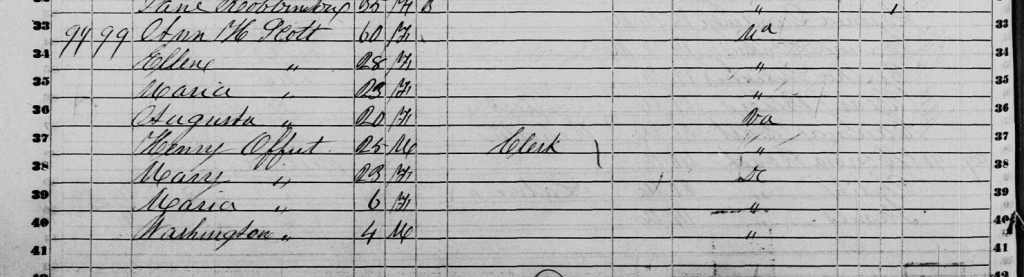 55 F B "
33 99 99 Ann H Scott 60 F Va 33
34 Ellen " 28 F " 34
35 Maria " 23 F " 35
36 Augusta " 20 F Va 36
37 Henry Offut 25 M Clerk " 37
38 Mary " 23 F DC 38
39 Maria " 6 F " 39
40 Washington " 4 M " 40
41 41